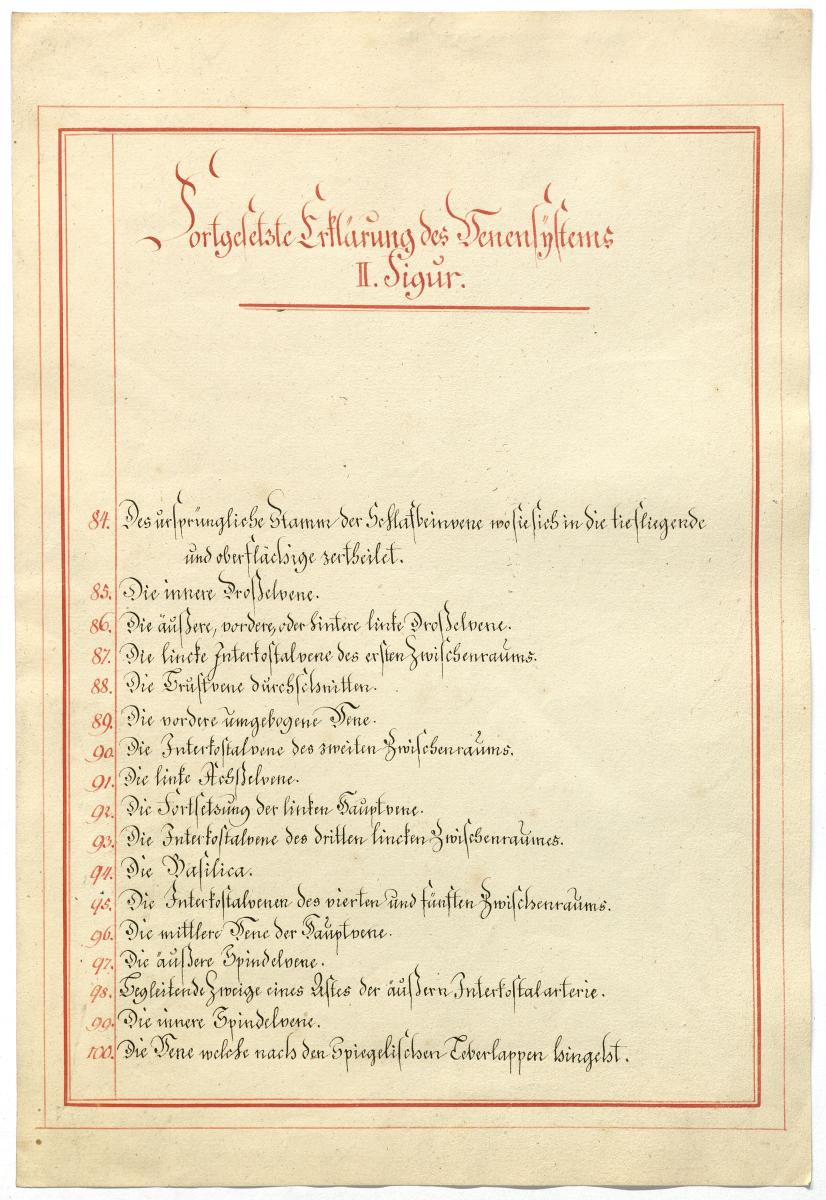 Fortgesetzte Erklärung des Venensÿstems
II. Figur.
84. Des ursprüngliche Stamm der Schlafbeinvene wo sie sich in die tiefliegende
und oberflächige zertheilet.
85. Die innere Droßelvene.
86. Die äußere, vordere, oder hintere linke Droßelvene.
87. Die lincke Interkostalvene des ersten Zwischenraums.
88. Die Brustvene durchschnitten.
89. Die vordere umgebogene Vene.
90. Die Interkostalvene des zweiten Zwischenraums.
91. Die linke Achßelvene.
92. Die Fortsetzung der linken Hauptvene.
93. Die Interkostalvene des dritten lincken Zwischenraumes.
94. Die Basilica.
95. Die Interkostalvenen des vierten und fünften Zwischenraums.
96. Die mittlere Vene der Hauptvene.
97. Die äußere Spindelvene.
98. Begleitende Zweige eines Astes der äußern Interkostalarterie.
99. Die innere Spindelvene.
100. Die Vene welche nach den Spiegelischen Leberlappen hingeht.